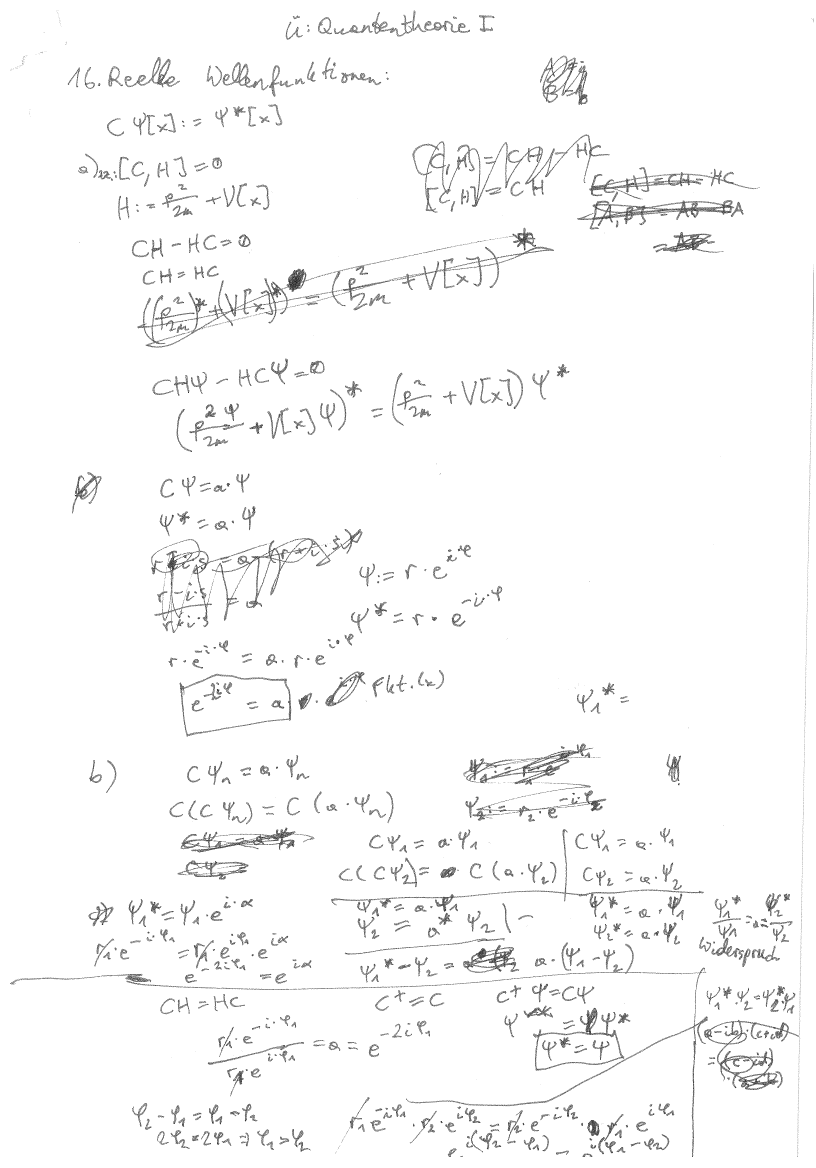 Ü: Quantentheorie I
16. Reelle Wellenfunktionen:
C Ψ[x] := Ψ*[x]
a) zz: [C, H] = 0
H := p²/2m + V[x]
[C, H] = CH - HC
[C, H] = CH
[C, H] = CH - HC
[A, B] = AB - BA
CH - HC = 0
CH = HC
((p²/2m)* + (V[x])*) = (p²/2m + V[x])*
CHΨ - HCΨ = 0
(p²Ψ/2m + V[x]Ψ)* = (p²/2m + V[x]) Ψ*
CΨ = a·Ψ
Ψ* = a·Ψ
r - i·s = a·(r + i·s)
(r - i·s)/(r + i·s) = a
Ψ := r·e^{iφ}
Ψ* = r·e^{-i·φ}
r·e^{-i·φ} = a·r·e^{i·φ}
e^{-2iφ} = a
Fkt.(x)
Ψ₁* =
b)
CΨₙ = a·Ψₙ
C(CΨₙ) = C(a·Ψₙ)
Ψ₂ := r₂·e^{-i·φ₂}
CΨ₁ = a·Ψ₁
CΨ₂ =
CΨ₁ = a·Ψ₁
C(CΨ₂) = C(a·Ψ₂)
CΨ₁ = a·Ψ₁
CΨ₂ = a·Ψ₂
Ψ₁* = Ψ₁·e^{i·α}
r₁·e^{-i·φ₁} = r₁·e^{iφ₁}·e^{iα}
e^{-2iφ₁} = e^{iα}
Ψ₁* = a·Ψ₁
Ψ₂ = a* Ψ₂ | -
Ψ₁* - Ψ₂ = a·(Ψ₁ - Ψ₂)
Ψ₁* = a·Ψ₁
Ψ₂* = a·Ψ₂
Ψ₁*/Ψ₁ = a = Ψ₂*/Ψ₂
Widerspruch
CH = HC
C⁺ = C
C⁺Ψ = CΨ
Ψ** = Ψ*
Ψ* = Ψ
r₁·e^{-i·φ₁}/r₁e^{i·φ₁} = a = e^{-2iφ₁}
Ψ₁*·Ψ₂ = Ψ₂*·Ψ₁
(a-ib)·(c+id)
= (c-id)
φ₂ - φ₁ = φ₁ - φ₂
2φ₂ = 2φ₁ ⇒ φ₁ = φ₂
r₁e^{-iφ₁}·r₂·e^{iφ₂} = r₂·e^{-iφ₂}·r₁·e^{iφ₁}
e^{i(φ₂-φ₁)} = e^{i(φ₁-φ₂)}